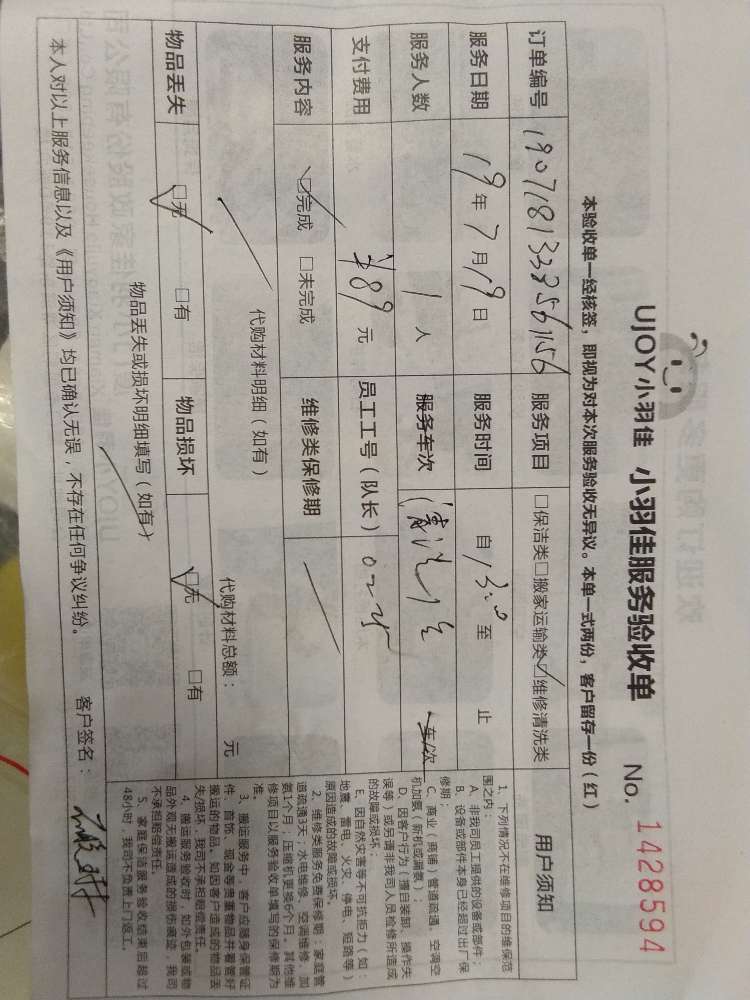 UJOY小羽佳 小羽佳服务验收单 No. 1428594
本验收单一经核签，即视为对本次服务验收无异议。本单一式两份，客户留存一份（红）
订单编号 190718133856156 服务项目 □保洁类□搬家运输类☑维修清洗类
服务日期 19年7月19日 服务时间 自13:0至 止
服务人数 1人 服务车次 车/次
支付费用 ¥89元 员工工号（队长）
服务内容 ☑完成 □未完成 维修类保修期
代购材料明细（如有）
代购材料总额： 元
物品丢失 ☑无 □有 物品损坏 ☑无 □有
物品丢失或损坏明细填写（如有）
本人对以上服务信息以及《用户须知》均已确认无误，不存在任何争议纠纷。 客户签名：
用户须知
1、下列情况不在维修项目的维保范
围之内：
A、非我司员工提供的设备或部件；
B、设备或部件本身已经超过出厂保
修期；
C、商业（商铺）管道疏通、空调空
机加氨（新机或漏氨）；
D、因客户行为（擅自装卸、操作失
误等）或另请非我司人员检修所造成
的故障或损坏；
E、因自然灾害等不可抗拒力（如：
地震、雷电、火灾、停电、短路等）
原因造成的故障或损坏。
2、维修类服务免费保修期：家庭管
道疏通3天；水电维修、空调维修、加
氨1个月；压缩机更换6个月。其他维
修项目以服务验收单填写的保修期为
准。
3、搬运服务中，客户应随身保管证
件、首饰、现金等贵重物品并看管好
搬运的物品，如因客户造成的物品丢
失/损坏，我司不承担赔偿责任。
4、搬运服务验收时，如外包装或物
品外观无搬运造成的损伤痕迹，我司
不承担赔偿责任。
5、家庭保洁服务验收结束后超过
48小时，我司不负责上门返工。